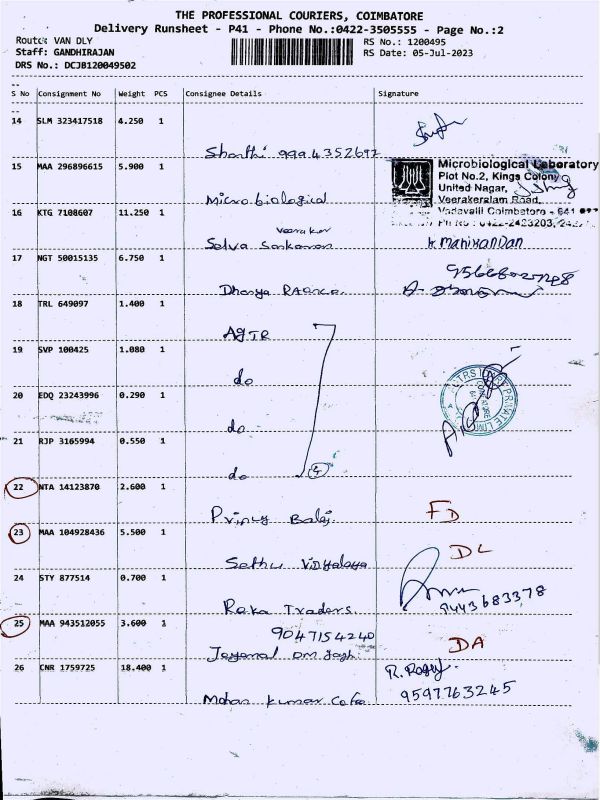 THE PROFESSIONAL COURIERS, COIMBATORE
Delivery Runsheet - P41 - Phone No.:0422-3505555 - Page No.:2
Route: VAN DLY
RS No.: 1200495
Staff: GANDHIRAJAN
RS Date: 05-Jul-2023
DRS No.: DCJB120049502
S No Consignment No Weight PCS Consignee Details Signature
14 SLM 323417518 4.250 1
Sharthi 9994352697
15 MAA 296896615 5.900 1
Microbiological Laboratory
Plot No.2, Kings Colony
United Nagar,
Veerakeralam Road,
Vadavalli Coimbatore - 641
Microbiological
16 KTG 7108607 11.250 1
Selva Sankaran
K. Manikandan
17 NGT 50015135 6.750 1
Dhanya
18 TRL 649097 1.400 1
AGTR
19 SVP 100425 1.080 1
do
20 EDQ 23243996 0.290 1
do
21 RJP 3165994 0.550 1
do 4
22 NTA 14123870 2.600 1
Balaji FD
23 MAA 104928436 5.500 1
Sethu Vidyalaya DL
24 STY 877514 0.700 1
Raka Traders 9443683378
25 MAA 943512055 3.600 1
9047154240
DA
26 CNR 1759725 18.400 1
Mohan Kumar
9597763245